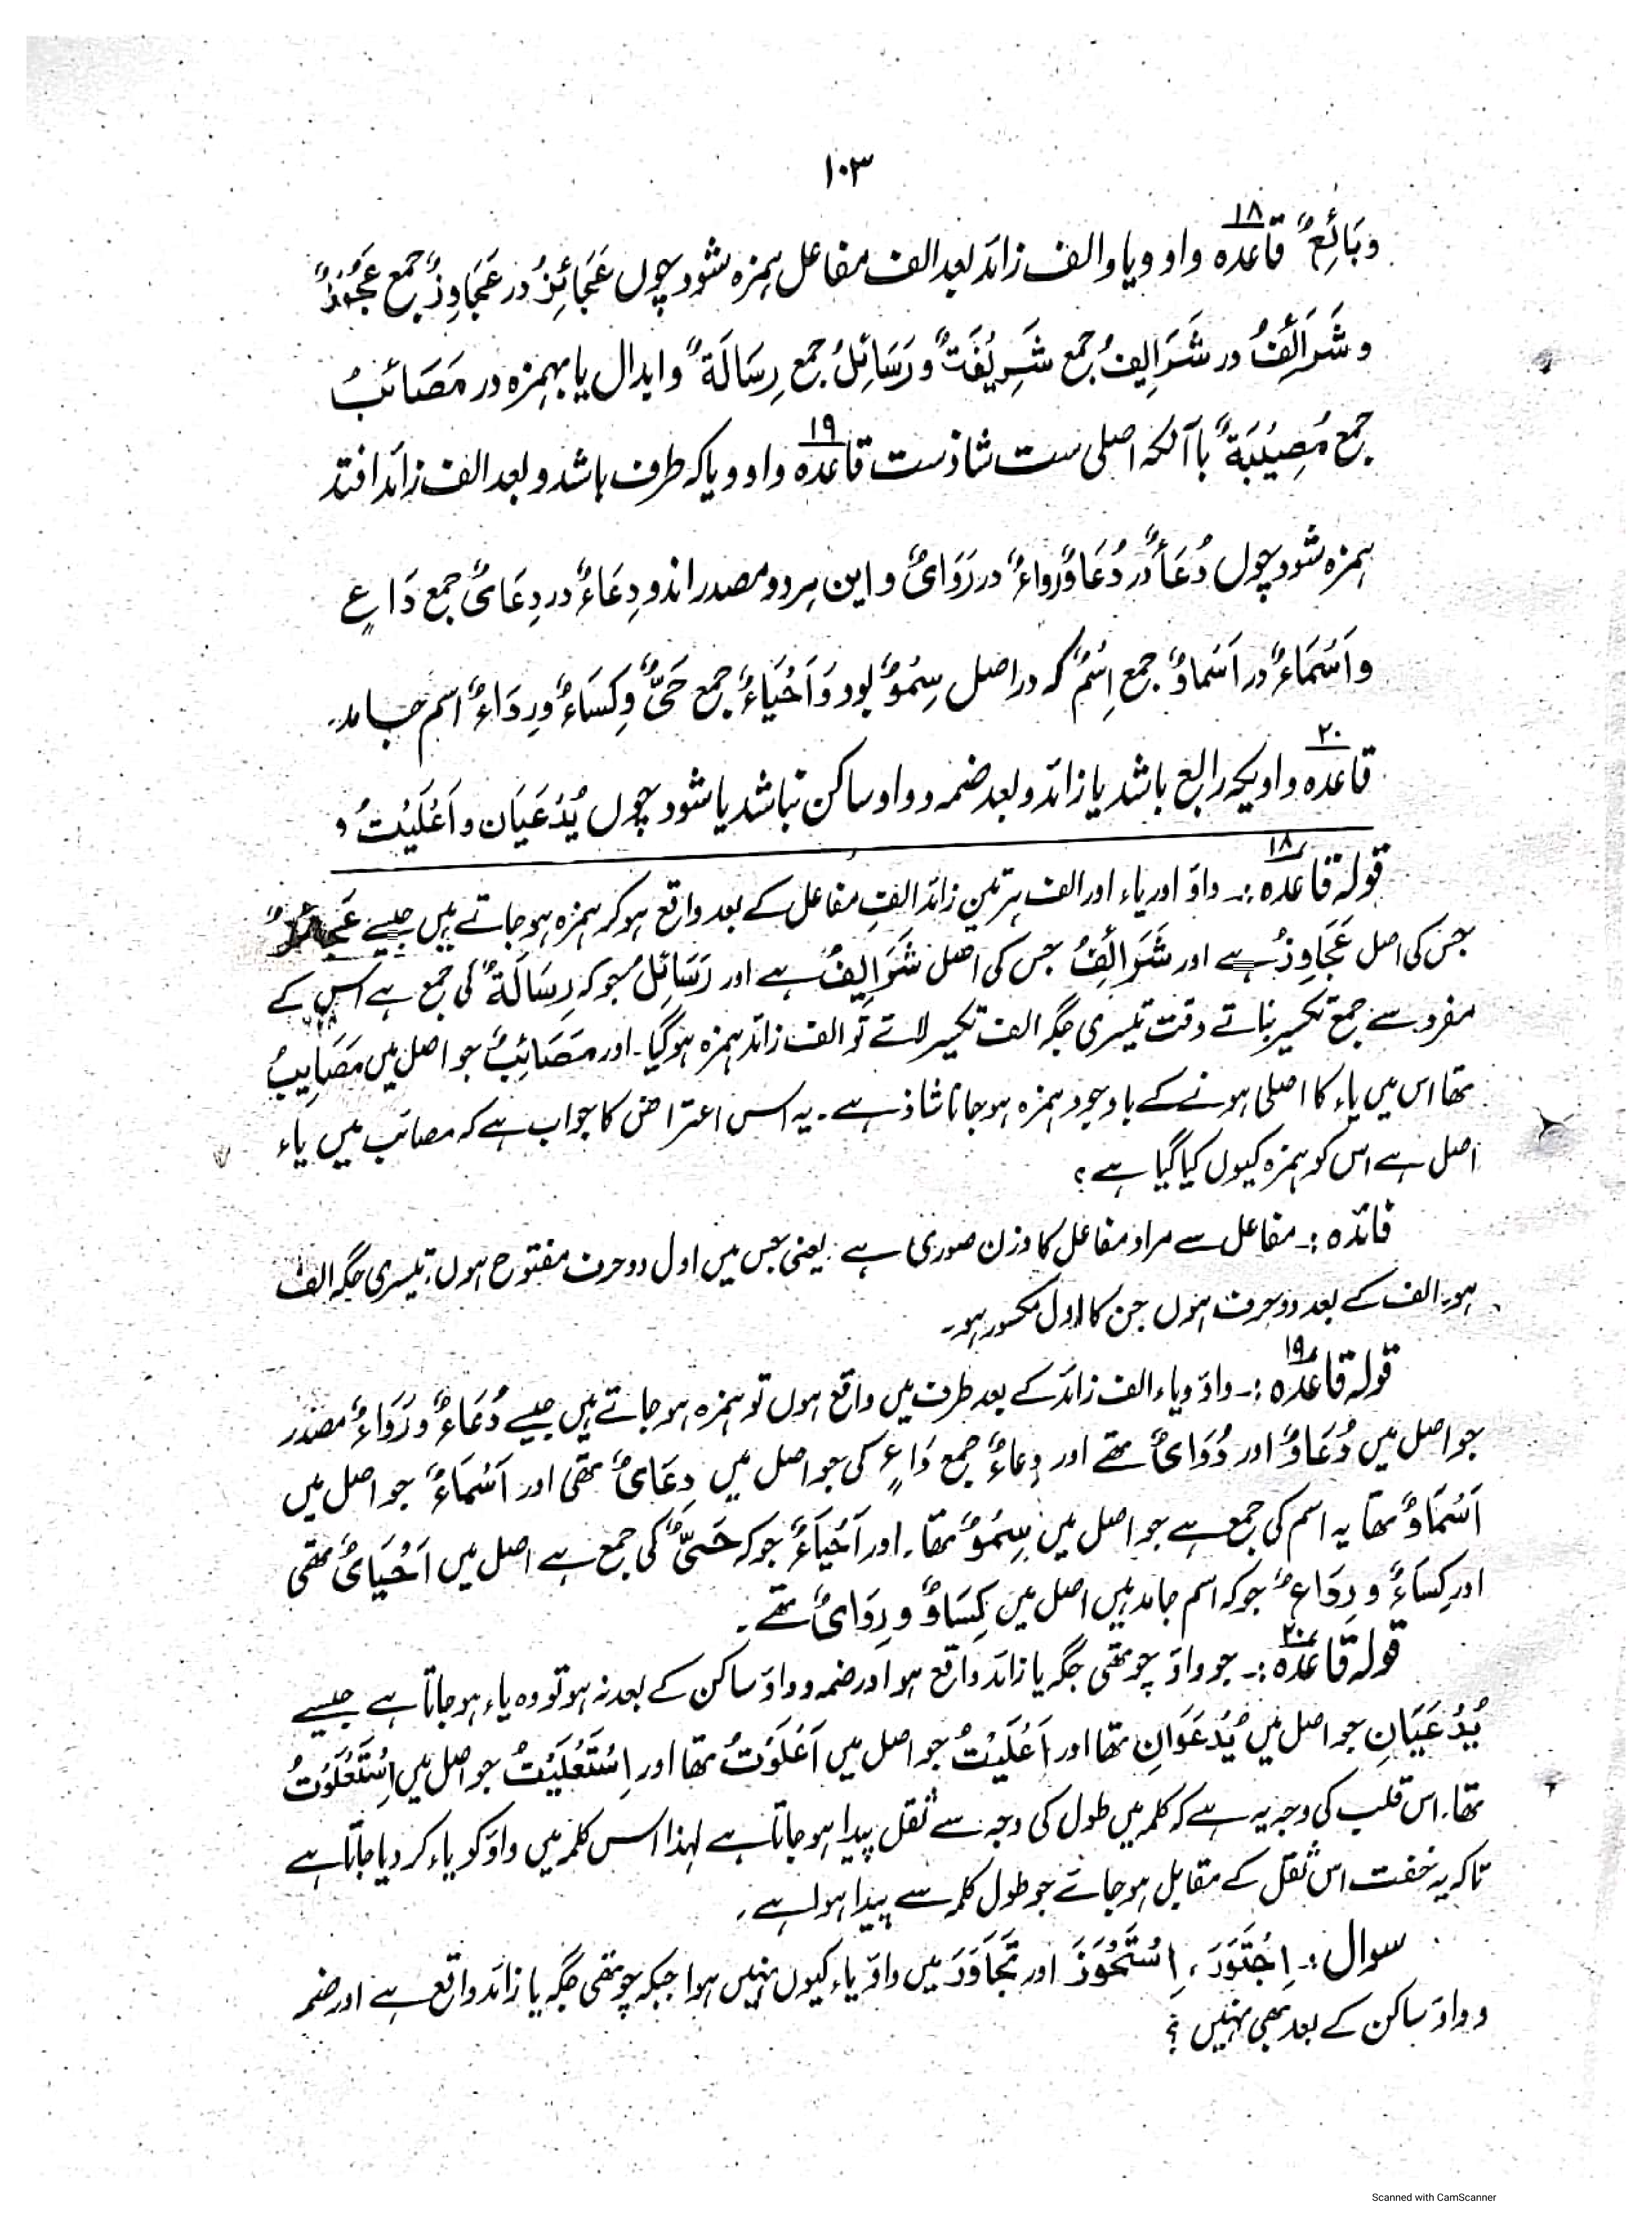 ۱۰۳
وبَائِعٌ قاعدہ ۱۸ واو ویا والف زائد بعد الف مفاعل ہمزہ شود چوں عَجَائِزُ در عَجَاوِزُ جمع عَجُوْزٌ
و شَرَائِفُ در شَرَایِفُ جمع شَرِیْفَةٌ و رَسَائِلُ جمع رِسَالَةٌ و ابدال یا بہمزہ در مَصَائِبُ
جمع مُصِیْبَةٌ با آنکہ اصلی ست شاذ ست قاعدہ ۱۹ واو ویا کہ طرف باشد و بعد الف زائد افتد
ہمزہ شود چوں دُعَاءٌ در دُعَاوٌ و رُواءٌ در رَوَایٌ و این ہر دو مصدر اند و دِعَاءٌ در دِعَایٌ جمع دَاعٍ
و اَسْمَاءٌ در اَسْمَاوٌ جمع اِسْمٌ کہ در اصل سِمْوٌ بود و اَحْیَاءٌ جمع حَیٌّ و کِسَاءٌ و رِدَاءٌ اسم جامد۔
قاعدہ ۲۰ واویکہ رابع باشد یا زائد و بعد ضمہ و واو ساکن نباشد یا شود چوں یُدْعَیَان و اَعْلَیْتُ و
قولہ قاعدہ ۱۸ :۔ واؤ اور یاء اور الف ہر تین زائد الفِ مفاعل کے بعد واقع ہو کر ہمزہ ہو جاتے ہیں جیسے
جس کی اصل عَجَاوِزُ ہے اور شَرَائِفُ جس کی اصل شَرَایِفُ ہے اور رَسَائِلُ جو کہ رِسَالَةٌ کی جمع ہے اس کے
مفرد سے جمع تکسیر بناتے وقت تیسری جگہ الف تکسیر لاتے تو الف زائد ہمزہ ہو گیا۔ اور مَصَائِبُ جو اصل میں مَصَایِبُ
تھا اس میں یاء کا اصلی ہونے کے باوجود ہمزہ ہو جانا شاذ ہے۔ یہ اس اعتراض کا جواب ہے کہ مصائب میں یاء
اصل ہے اس کو ہمزہ کیوں کیا گیا ہے ؟
فائدہ :۔ مفاعل سے مراد مفاعل کا وزن صوری ہے یعنی جس میں اول دو حرف مفتوح ہوں، تیسری جگہ الف
ہو۔ الف کے بعد دو حرف ہوں جن کا اول مکسور ہو۔
قولہ قاعدہ ۱۹ :۔ واؤ و یاء الف زائد کے بعد طرف میں واقع ہوں تو ہمزہ ہو جاتے ہیں جیسے دُعَاءٌ و رَوَاءٌ مصدر
جو اصل میں دُعَاوٌ اور دُوَایٌ تھے اور دِعاءٌ جمع دَاعٍ کی جو اصل میں دِعَایٌ تھی اور اَسْمَاءٌ جو اصل میں
اَسْمَاوٌ تھا یہ اسم کی جمع ہے جو اصل میں سِمْوٌ تھا۔ اور اَحْیَاءٌ جو کہ حَیٌّ کی جمع ہے اصل میں اَحْیَایٌ تھی
اور کِسَاءٌ و رِدَاءٌ جو کہ اسم جامد ہیں اصل میں کِسَاوٌ و رِدَایٌ تھے۔
قولہ قاعدہ ۲۰ :۔ جو واؤ چوتھی جگہ یا زائد واقع ہو اور ضمہ و واؤ ساکن کے بعد نہ ہو تو وہ یاء ہو جاتا ہے جیسے
یُدْعَیَانِ جو اصل میں یُدْعَوَانِ تھا اور اَعْلَیْتُ جو اصل میں اَعْلَوْتُ تھا اور اِسْتَعْلَیْتُ جو اصل میں اِسْتَعْلَوْتُ
تھا۔ اس قلب کی وجہ یہ ہے کہ کلمہ میں طول کی وجہ سے ثقل پیدا ہو جاتا ہے لہذا اس کلمہ میں واؤ کو یاء کر دیا جاتا ہے
تاکہ یہ خفت اس ثقل کے مقابل ہو جائے جو طول کلمہ سے پیدا ہوا ہے۔
سوال :۔ اِجْتَوَرَ، اِسْتَحْوَذَ اور تَجَاوَرَ میں واؤ یاء کیوں نہیں ہوا جبکہ چوتھی جگہ یا زائد واقع ہے اور ضمہ
و واؤ ساکن کے بعد بھی نہیں ؟
Scanned with CamScanner